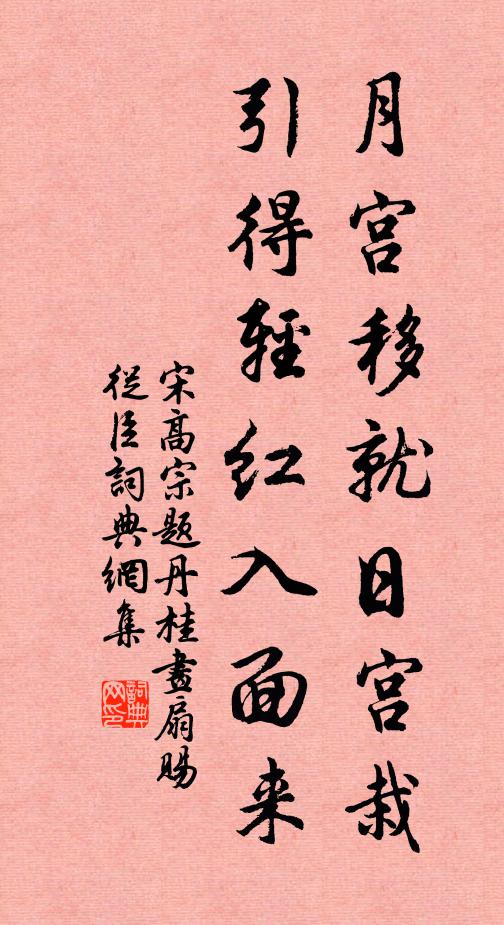 月宫移就日宫栽
引得輕红入面来
宋高宗题丹桂畫扇賜
從臣詞典網集
詞典网印